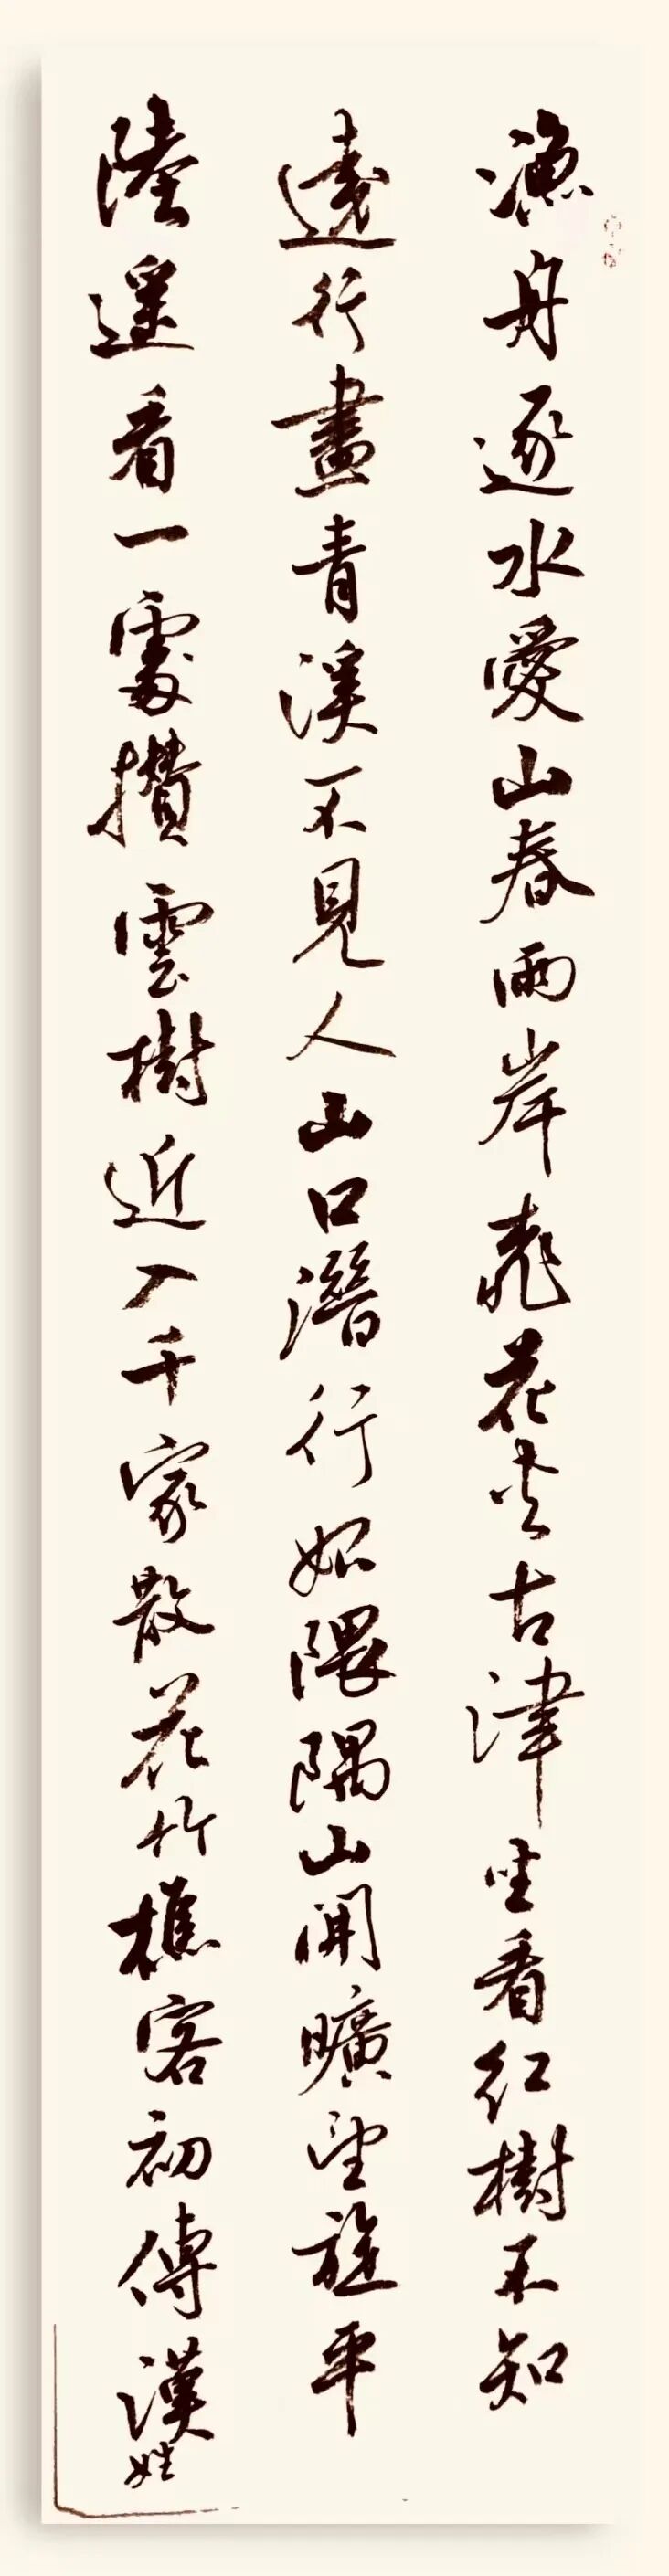 漁舟逐水愛山春兩岸桃花夾古津坐看紅樹不知
遠行盡青溪不見人山口潛行始隈隅山開曠望旋平
陸遙看一處攢雲樹近入千家散花竹樵客初傳漢姓